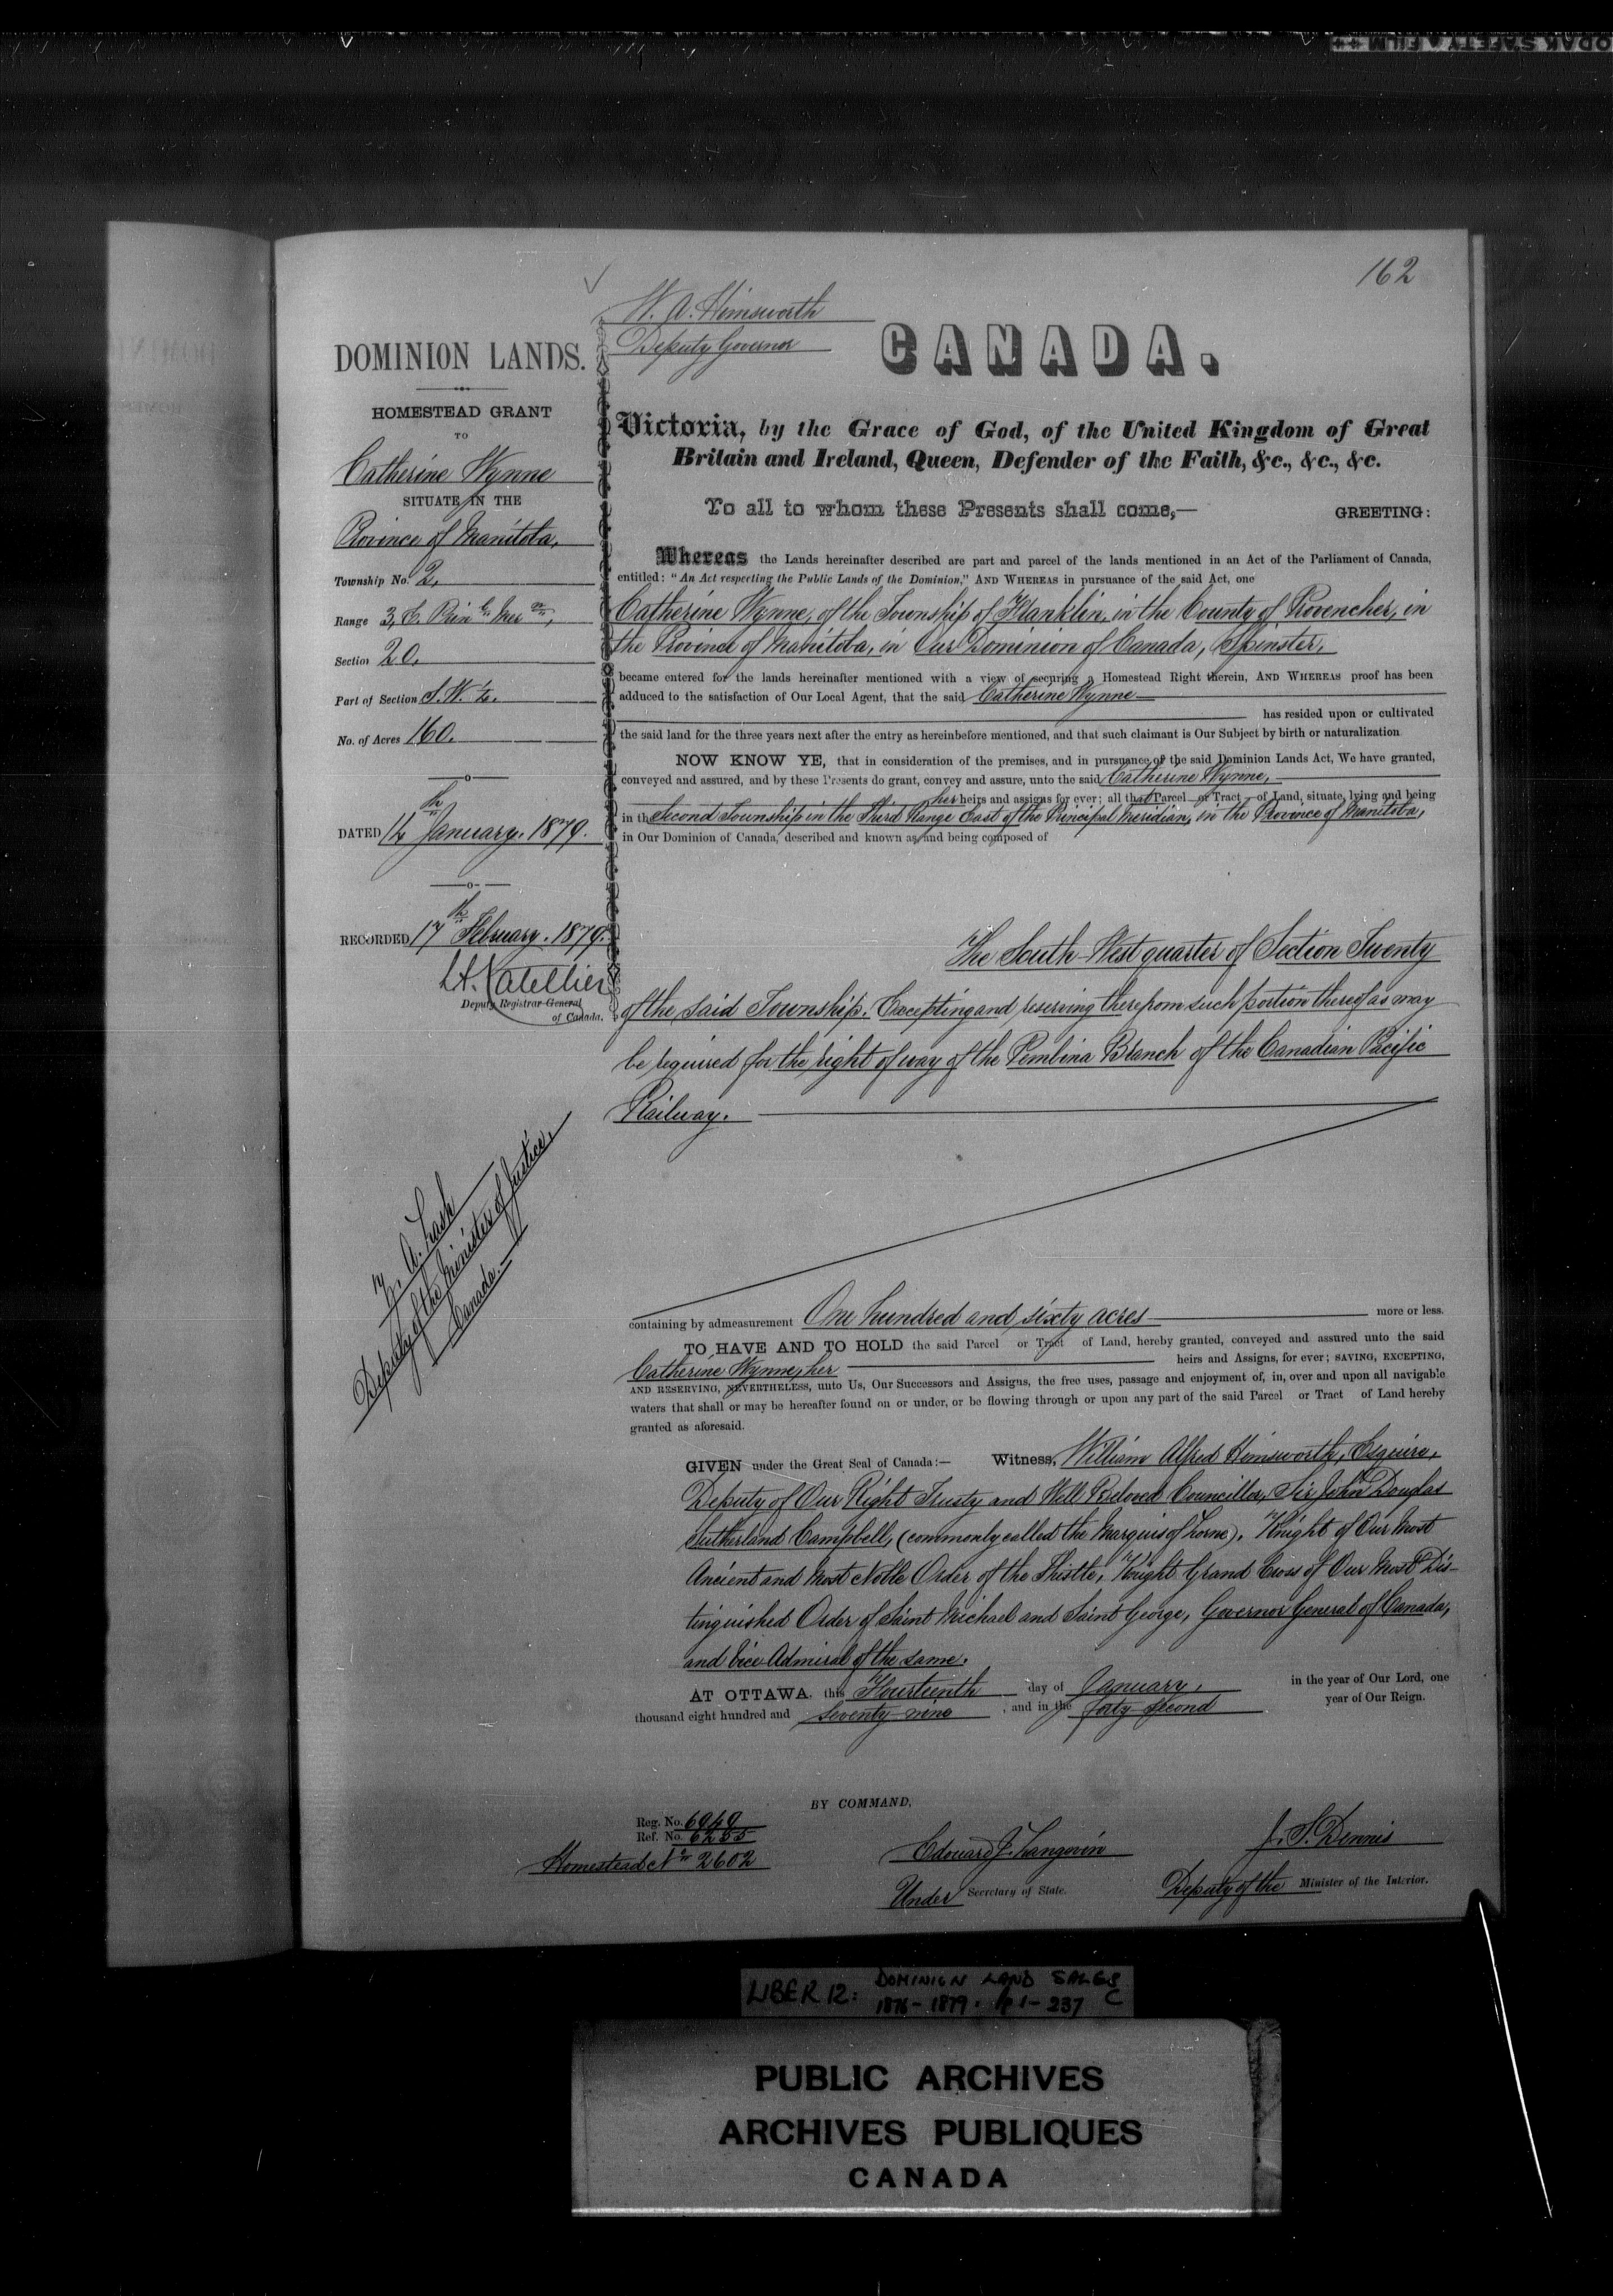 162
W. A. Himsworth
Deputy Governor
CANADA.
DOMINION LANDS.
HOMESTEAD GRANT
TO
Catherine Wynne
SITUATE IN THE
Province of Manitoba,
Township No. 2,
Range 3, E. Prin l. Mer n,
Section 20,
Part of Section S. W. ¼.
No. of Acres 160.
DATED 14th January. 1879.
RECORDED 17th February. 1879.
Deputy Registrar General
of Canada.
Z. A. Lash
Deputy of the Minister of Justice,
Canada.
Victoria, by the Grace of God, of the United Kingdom of Great
Britain and Ireland, Queen, Defender of the Faith, &c., &c., &c.
To all to whom these Presents shall come,— GREETING:
Whereas the Lands hereinafter described are part and parcel of the lands mentioned in an Act of the Parliament of Canada,
entitled: "An Act respecting the Public Lands of the Dominion," AND WHEREAS in pursuance of the said Act, one
Catherine Wynne, of the Township of Franklin, in the County of Provencher, in
the Province of Manitoba, in Our Dominion of Canada, Spinster,
became entered for the lands hereinafter mentioned with a view of securing a Homestead Right therein, AND WHEREAS proof has been
adduced to the satisfaction of Our Local Agent, that the said Catherine Wynne
has resided upon or cultivated
the said land for the three years next after the entry as hereinbefore mentioned, and that such claimant is Our Subject by birth or naturalization
NOW KNOW YE, that in consideration of the premises, and in pursuance of the said Dominion Lands Act, We have granted,
conveyed and assured, and by these Presents do grant, convey and assure, unto the said Catherine Wynne,
her heirs and assigns for ever; all that Parcel or Tract of Land, situate, lying and being
in the Second Township in the Third Range East of the Principal Meridian, in the Province of Manitoba,
in Our Dominion of Canada, described and known as and being composed of
The South-West quarter of Section Twenty
of the said Township. Excepting and reserving therefrom such portion thereof as may
be required for the right of way of the Pembina Branch of the Canadian Pacific
Railway.
containing by admeasurement One hundred and sixty acres more or less.
TO HAVE AND TO HOLD the said Parcel or Tract of Land, hereby granted, conveyed and assured unto the said
Catherine Wynne, her heirs and Assigns, for ever; SAVING, EXCEPTING,
AND RESERVING, NEVERTHELESS, unto Us, Our Successors and Assigns, the free uses, passage and enjoyment of, in, over and upon all navigable
waters that shall or may be hereafter found on or under, or be flowing through or upon any part of the said Parcel or Tract of Land hereby
granted as aforesaid.
GIVEN under the Great Seal of Canada:— Witness, William Alfred Himsworth, Esquire,
Deputy of Our Right Trusty and Well Beloved Councillor, Sir John Douglas
Sutherland Campbell, (commonly called the Marquis of Lorne), Knight of Our Most
Ancient and Most Noble Order of the Thistle, Knight Grand Cross of Our Most Dis-
tinguished Order of Saint Michael and Saint George, Governor General of Canada,
and Vice Admiral of the same.
AT OTTAWA, this Fourteenth day of January, in the year of Our Lord, one
thousand eight hundred and seventy nine, and in the forty second year of Our Reign.
BY COMMAND,
Reg. No. 6949
Ref. No. 6255
Homestead No 2602
Edouard J. Langevin
Under Secretary of State.
J. S. Dennis
Deputy of the Minister of the Interior.
LIBER 12: DOMINION LAND SALES
1876-1879. pp 1-237 C
PUBLIC ARCHIVES
ARCHIVES PUBLIQUES
CANADA